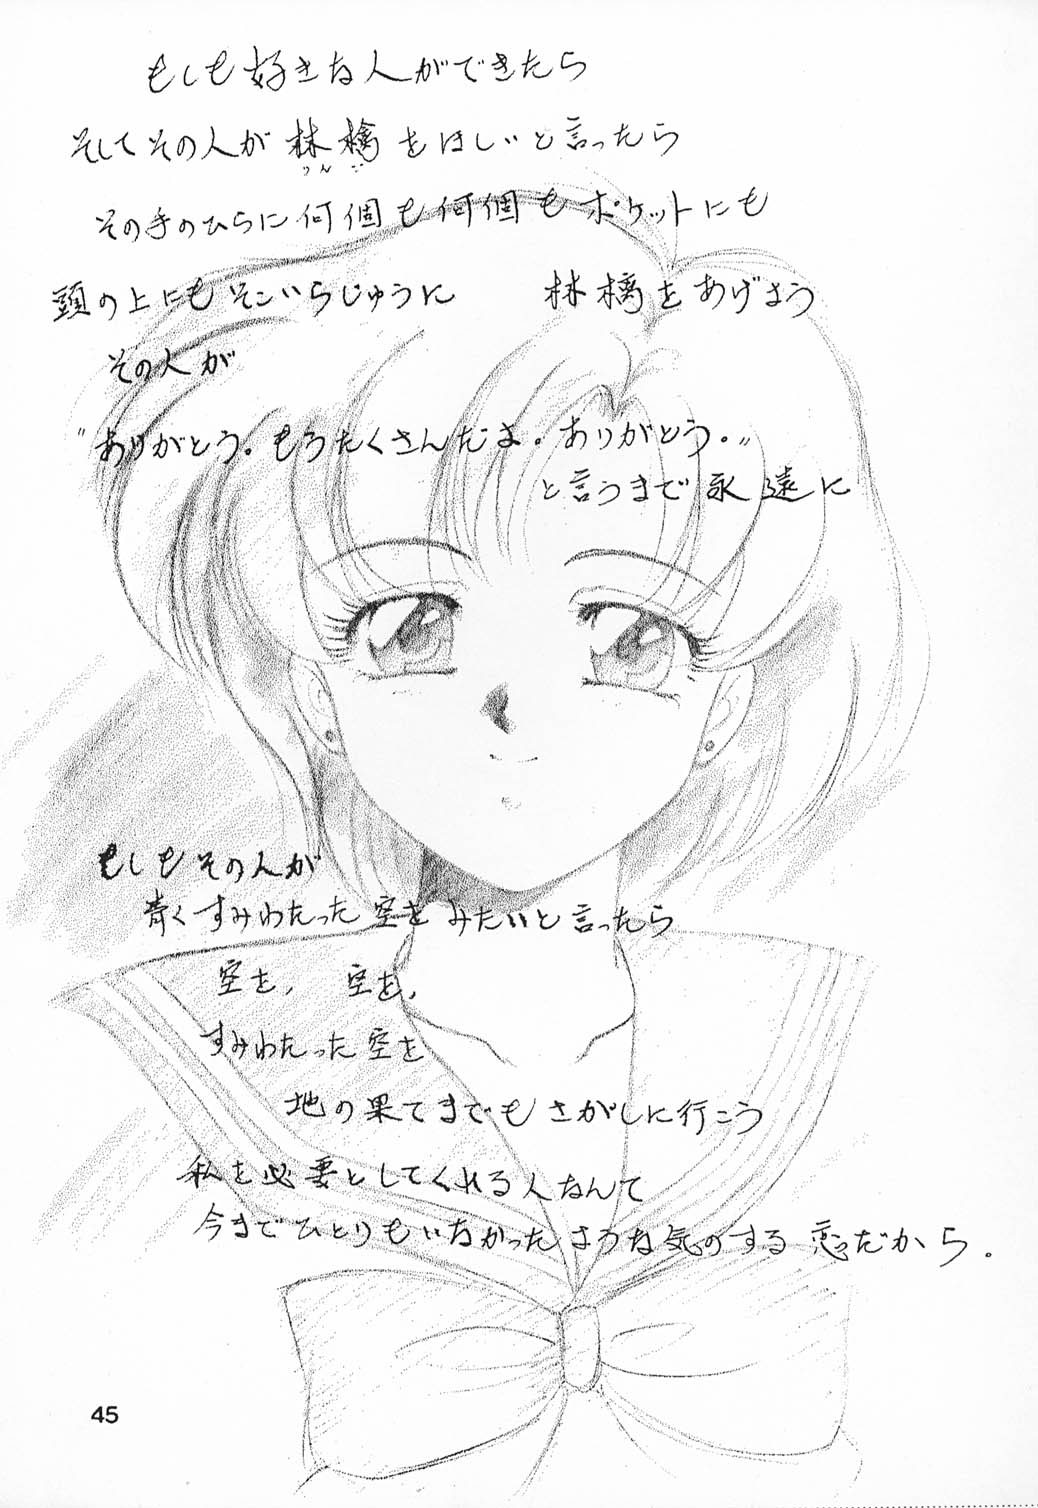 もしも好きな人ができたら
そしてその人が林檎をほしいと言ったら
りんご
その手のひらに何個も何個もポケットにも
頭の上にもそこいらじゅうに　林檎をあげよう
その人が
"ありがとう。もうたくさんだよ。ありがとう。"
と言うまで永遠に
もしもその人が
青くすみわたった空をみたいと言ったら
空を,　空を,
すみわたった空を
地の果てまでもさがしに行こう
私を必要としてくれる人なんて
今までひとりもいなかったような気のする恋だから.
45